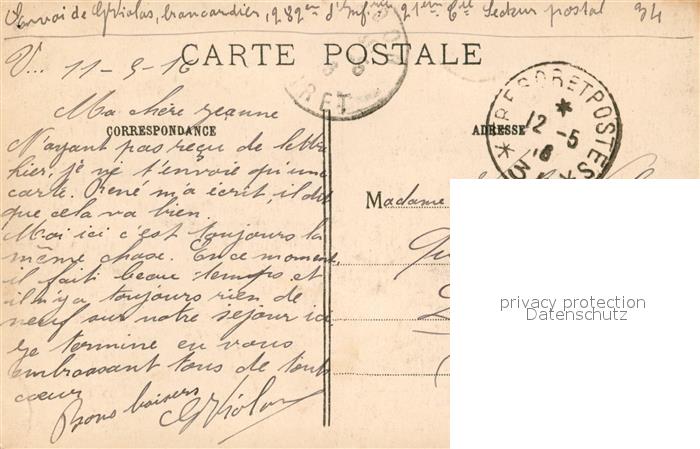 Envoi de G Violas, brancardier, 289em d'Infrie 21em Cie Secteur postal 34
CARTE POSTALE
V... 11-5-16
RET
Ma chère Jeanne
CORRESPONDANCE
ADRESSE
TRESOR ET POSTES
12-5
16
N'ayant pas reçu de lettre
hier, je ne t'envoie qu'une
carte. René m'a écrit, il dit
que cela va bien.
Madame
Moi ici c'est toujours la
même chose. En ce moment,
il fait beau temps et
il n'y a toujours rien de
neuf sur notre séjour ici.
Je termine en vous
embrassant tous de tout
cœur
Bons baisers
G Violas
privacy protection
Datenschutz